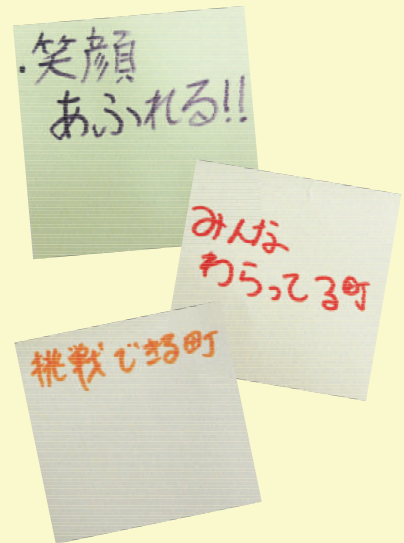 ・笑顔
あふれる!!
みんな
わらってる町
挑戦できる町